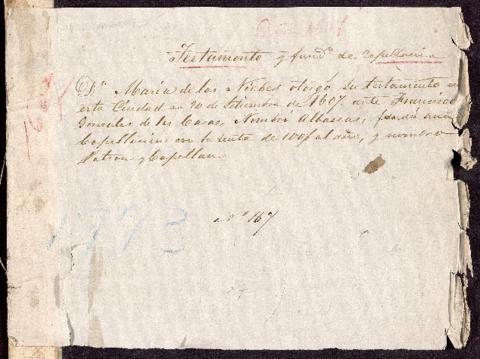 Testamento y fund.n de Capellania
D.a Maria de las Niebes otorgó su testamento en
esta Ciudad en 20 de de 1607 ante Francisco
Gonzales de las Casas. Nombra Albaceas, funda una
Capellania con la renta de 100 al año, y nombra
Patron y Capellan
n.o 167
1607
1773